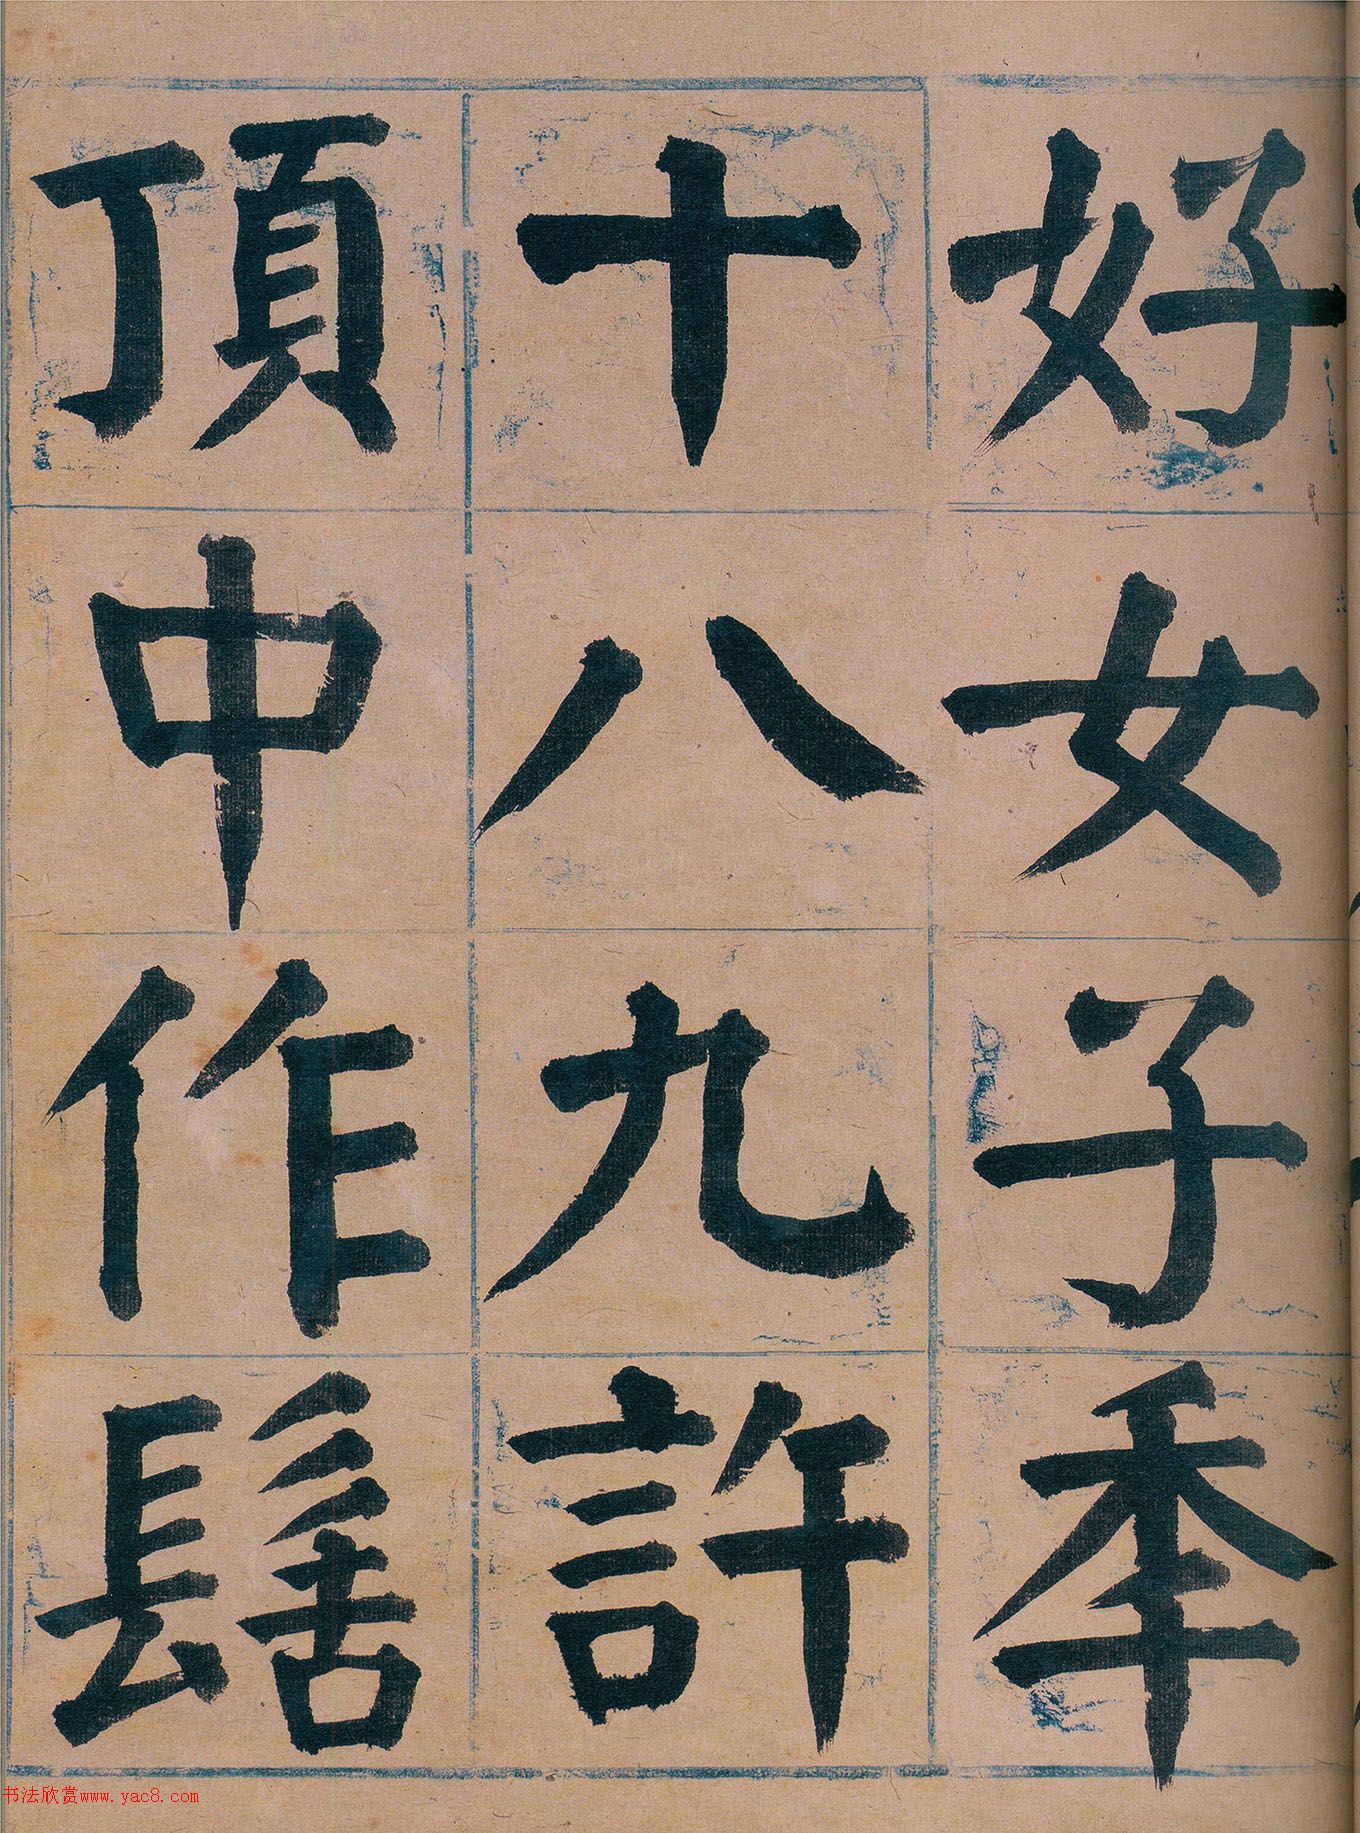 好女子秊
十八九許
頂中作髻
书法欣赏www.yac8.com